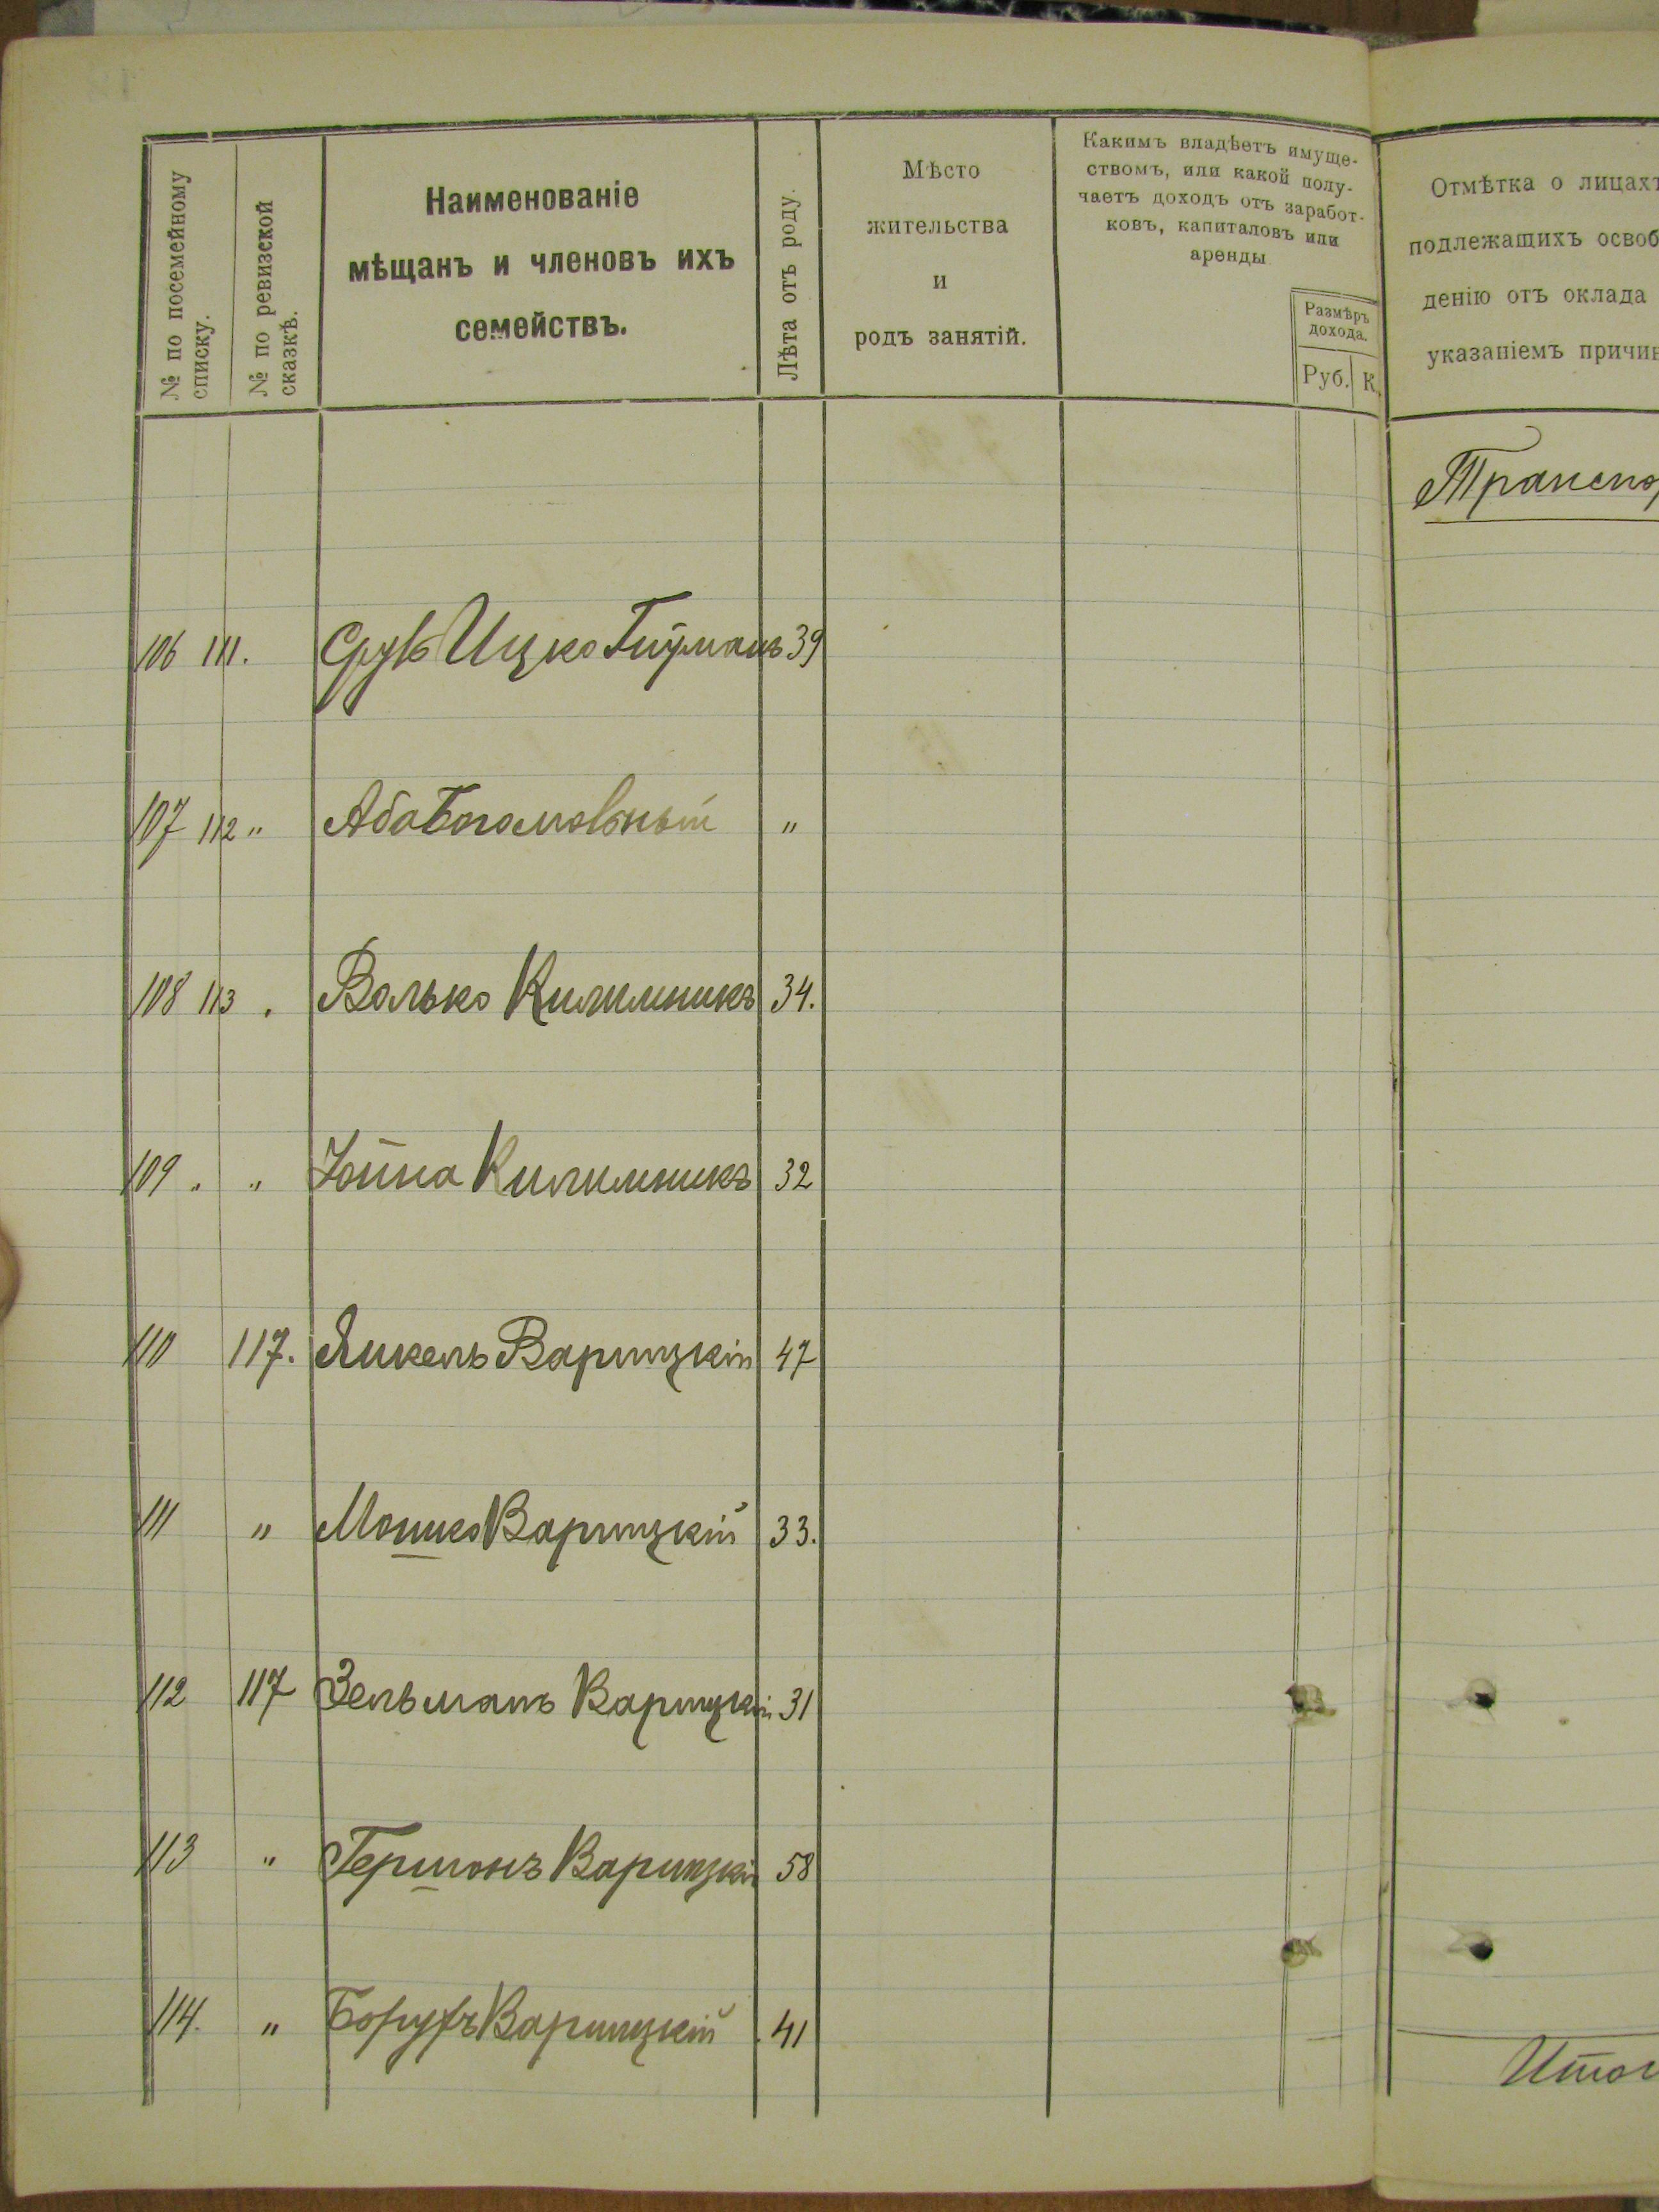 № по посемейному
списку.
№ по ревизской
сказкѣ.
Наименованіе
мѣщанъ и членовъ ихъ
семействъ.
Лѣта отъ роду.
Мѣсто
жительства
и
родъ занятій.
Какимъ владѣетъ имуще-
ствомъ, или какой полу-
чаетъ доходъ отъ заработ-
ковъ, капиталовъ или
аренды
Размѣръ
дохода.
Руб. К.
Отмѣтка о лицахъ
подлежащихъ освоб
денію отъ оклада
указаніемъ причин
Транспор
106 111. Ицко 39
107 112 " Аба Богомольный "
108 113 . Волько Килимникъ 34.
109 " " Іойна Килимникъ 32
110 117. Янкель Варшицкій 47
111 " Мошко Варшицкій 33.
112 117 Зельманъ Варшицкій 31
113 " Гершонъ Варшицкій 58
114. " Борухъ Варшицкій 41
Итог